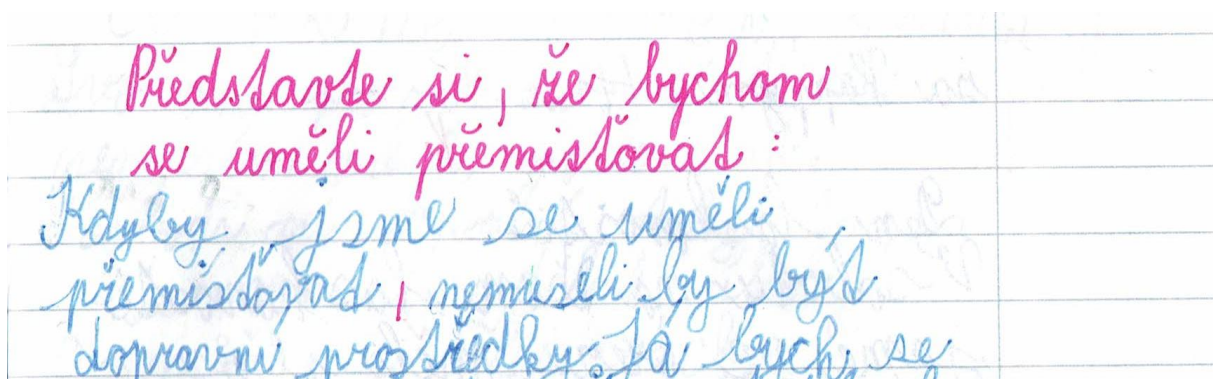 Představte si, že bychom
se uměli přemisťovat:
Kdyby jsme se uměli
přemísťovat, nemuseli by být
dopravní prostředky. Já bych se